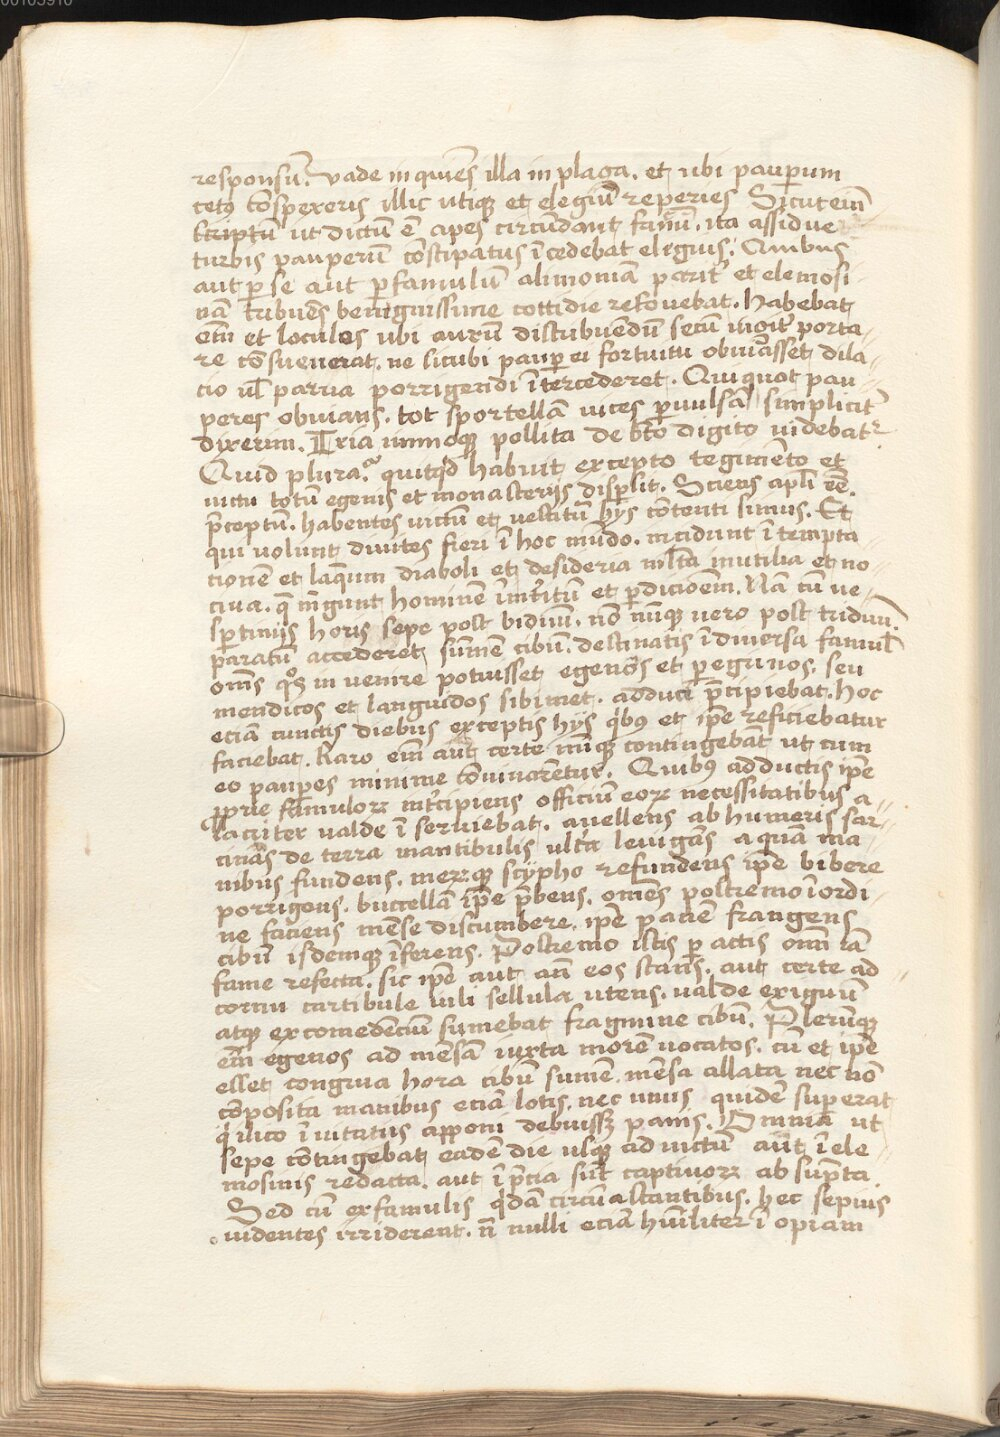 00105910
responsū. vade in quiēs illa in plaga. et ubi pauꝑum
cetꝰ cōspexeris illic utiqꝫ et elegiū reperies Sicut eiñ
scriptū ut dictū ē apes circūdant fauū. ita assidue
turbis pauperū cōstipatus īcedebat eligius. Quibus
aut ꝑ se aut ꝑ famulū alimoniā parit᷑ et elemosi
nā tribuēs benignissime cottidie refovebat. Habebat
etiā et loculos ubi aurū distribuēdū secū iugit᷑ porta-
re cōsueuerat. ne sicubi pauꝑ ei fortuitu obuiasset dila-
cio ul̄ parua porrigendi īntercederet. Qui quot pau
peres obuians. tot sportellā uices ꝑuulsā simplicit᷑
dixerim. Tria nimiqꝫ pollita de bt̄o digito uidebat᷑
Quid plura. quitqd habuit excepto tegumēto et
uictu totū egenis et monasterijs disꝑsit. Sciens apl̄i eē
p̄ceptū. habentes uictū et uestitū hijs cōtenti simus. Et
qui uolunt diuites fieri ī hoc mūdo. incidunt ī tempta
tionē et laqueum diaboli et desideria ml̄ta inutilia et no-
ciua. q̄ m̄gunt hominē īnt᷑itū et ꝑdicioēm. Nā cū ve-
sꝑtinijs horis sepe post biduū. nō nūqꝫ uero post triduū
paratū accederet sumēe cibū. destinatis ī diuersa famul̄
om̄s q̊s inuenire potuisset egenos et ꝑegrinos. seu
mendicos et languidos sibimet. adduci p̄cipiebat. Hoc
eciā cunctis diebus exceptis hijs qͥbꝰ et ip̄e reficiebatur
faciebat. Raro eiñ aut certe nūqꝫ contingebāt ut cum
eo pauꝑes minime cōuiuarētur. Quibꝰ adductis ip̄e
ꝓprie famuloꝝ int᷑cipiens officiū eoꝝ necessitatibus a-
lacriter valde ī seruiebat. auellens ab humeris sar-
cinās de terra mantibulis ultͣa leuigās aquā ma
nibus fundens. merꝝqꝫ scypho refundens ip̄e bibere
porrigens. buccellā ip̄e p̄bens. omēs postremo ī ordi
ne faciens mēse discumbere. ip̄e panē frangens
cibū isdemqꝫ īferens. Postremo istis ꝑactis om̄i iā
fame refecta. sic ip̄e aut an̄ eos stans. aut certe ad
cornu cartibule uili sellula utens. valde exiguū
atqꝫ ex comedēciū sumebat fragmine cibū. Plerūqꝫ
eiñ egenos ad mēsā iuxta morē uocatos. cū et ip̄e
esset congrua hora cibū sumēe. mēsa allata nec nō
cōposita manibus eciā lotis. nec unus quidē suꝑerat
qͥ ilico ī uitatus apponi debuissꝫ panis. Omnia ut
sepe cōtingebat eadē die usqꝫ ad uictū aut ī ele
mosinis redacta. aut ī p̄cia sūt captiuoꝝ absūpta.
Sed cū ex famulis qͥdā circū astantibus. hec sepius
uidentes irriderent. n̄ nulli eciā hūiliter ī opiam